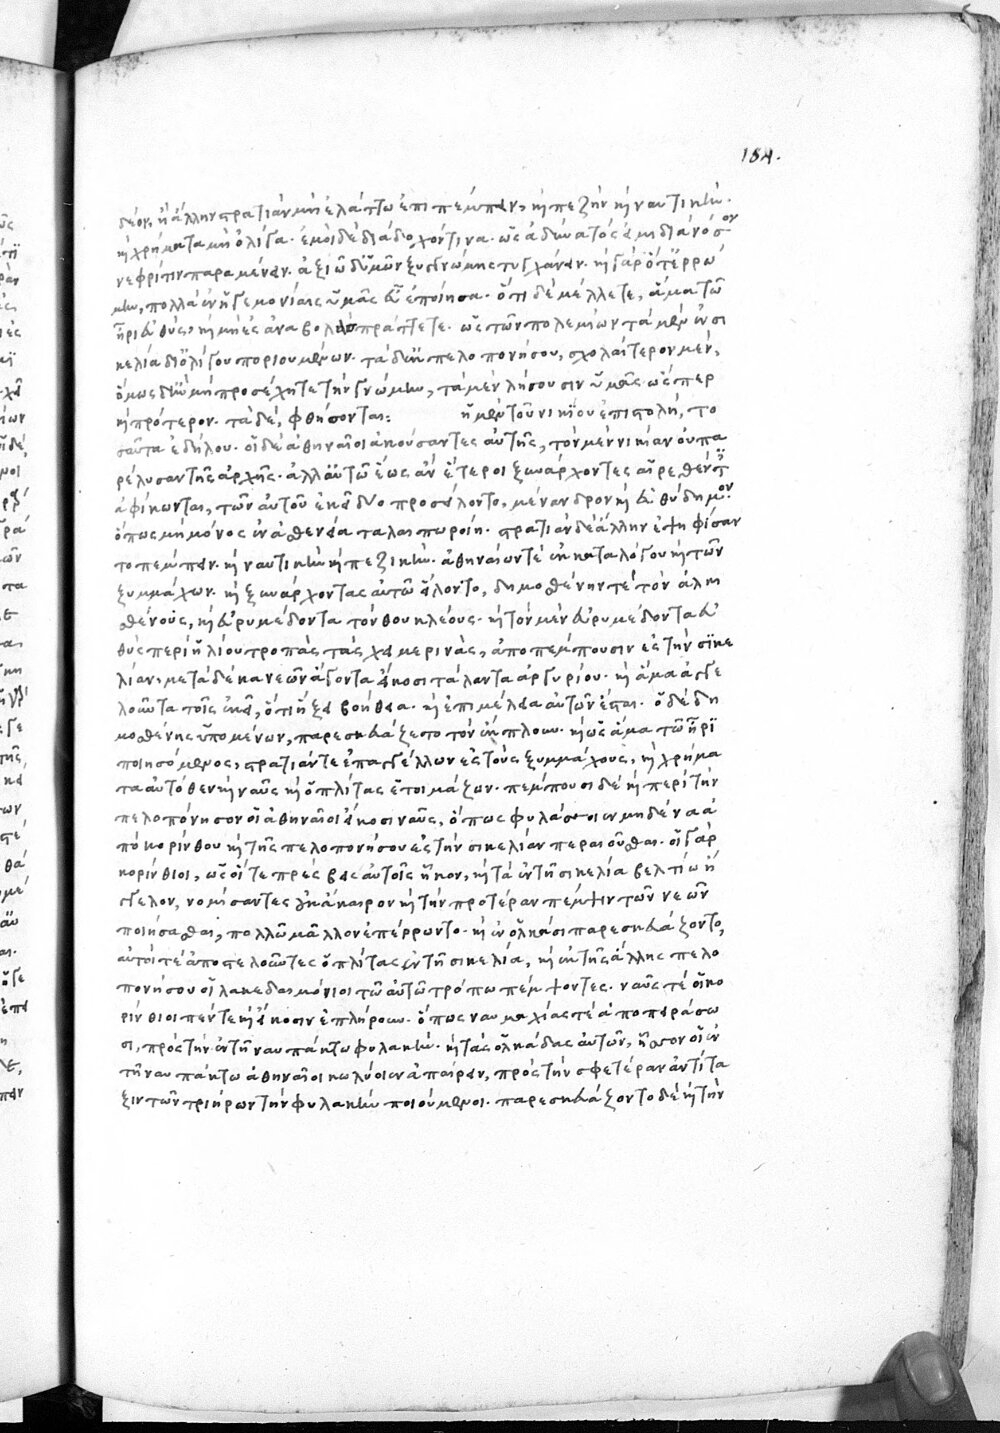 184.
δέον, ἢ ἄλλην στρατιὰν μὴ ἐλάττω ἐπιπέμπειν, καὶ πεζὴν καὶ ναυτικὴν.
καὶ χρήματα μὴ ὀλίγα. ἐμοὶ δὲ διάδοχόν τινα. ὡς ἀδύνατός εἰμι διὰ νόσον
νεφρῖτιν παραμένειν. ἀξιῶ δ' ὑμῶν ξυγγνώμης τυγχάνειν. καὶ γὰρ ὅτ' ἐρρώ
μην, πολλὰ ἐν ἡγεμονίαις ὑμᾶς εὖ ἐποίησα. ὅτι δὲ μέλλετε, ἅμα τῶ
ἦρι εὐθὺς, καὶ μὴ ἐς ἀναβολὰς πράττετε. ὡς τῶν πολεμίων τὰ μὲν ἐν σι
κελία δι' ὀλίγου ποριουμένων. τὰ δ' ἐκ πελοπονήσου, σχολαίτερον μὲν,
ὅμως δ' ἢν μὴ προσέχητε τὴν γνώμην, τὰ μὲν λήσουσιν ὑμᾶς ὥσπερ
καὶ πρότερον. τὰ δὲ, φθήσονται: ἡ μὲν τοῦ νικίου ἐπιστολὴ, το
σαῦτα ἐδήλου. οἱ δὲ ἀθηναῖοι ἀκούσαντες αὐτῆς, τὸν μὲν νικίαν οὐ πα
ρέλυσαν τῆς ἀρχῆς. ἀλλ' αὐτῶ ἕως ἂν ἕτεροι ξυνάρχοντες αἱρεθέντες
ἀφίκωνται, τῶν αὐτοῦ ἐκεῖ δύο προσείλοντο, μένανδρον καὶ εὐθύδημον.
ὅπως μὴ μόνος ἐν ἀσθενεία ταλαιπωροίη. στρατιὰν δὲ ἄλλην ἐψηφίσαν
το πέμπειν. καὶ ναυτικὴν καὶ πεζικὴν. ἀθηναίων τὲ ἐκ καταλόγου καὶ τῶν
ξυμμάχων. καὶ ξυνάρχοντας αὐτῶ εἵλοντο, δημοσθένην τὲ τὸν ἀλκι
σθένους, καὶ εὐρυμέδοντα τὸν θουκλέους. καὶ τὸν μὲν εὐρυμέδοντα εὐ
θὺς περὶ ἡλίου τροπὰς τὰς χειμερινὰς, ἀποπέμπουσιν ἐς τὴν σικε
λίαν, μετὰ δέκα νεῶν ἄγοντα εἴκοσι τάλαντα ἀργυρίου. καὶ ἅμα ἀγγε
λοῦντα τοῖς ἐκεῖ, ὅτι ἥξει βοήθεια. καὶ ἐπιμέλεια αὐτῶν ἔσται. ὁ δὲ δη
μοσθένης ὑπομένων, παρεσκευάζετο τὸν ἔκπλουν. καὶ ὡς ἅμα τῶ ἦρι
ποιησόμενος, στρατιάν τε ἐπαγγέλλων ἐς τοὺς ξυμμάχους, καὶ χρήμα
τα αὐτόθεν καὶ ναῦς καὶ ὁπλίτας ἑτοιμάζων. πέμπουσι δὲ καὶ περὶ τὴν
πελοπόνησον οἱ ἀθηναῖοι εἴκοσι ναῦς, ὅπως φυλάσσοιεν μηδένα ἀ
πὸ κορίνθου καὶ τῆς πελοπονήσου ἐς τὴν σικελίαν περαιοῦσθαι. οἱ γὰρ
κορίνθιοι, ὡς οἵ τε πρέσβεις αὐτοῖς ἧκον, καὶ τὰ ἐν τῆ σικελία βελτίω ἤ
γγελον, νομίσαντες οὐκ ἄκαιρον καὶ τὴν προτέραν πέμψιν τῶν νεῶν
ποιήσασθαι, πολλῶ μᾶλλον ἐπέρρωντο. καὶ ἐν ὁλκάσι παρεσκευάζοντο,
αὐτοί τε ἀποστελοῦντες ὁπλίτας ἐν τῆ σικελία, καὶ ἐκ τῆς ἄλλης πελο
πονήσου οἱ λακεδαιμόνιοι τῶ αὐτῶ τρόπω πέμψοντες. ναῦς τὲ οἱ κο
ρίνθιοι πέντε καὶ εἴκοσιν ἐπλήρουν. ὅπως ναυμαχίας τὲ ἀποπειράσω
σι, πρὸς τὴν ἐν τῆ ναυπάκτω φυλακὴν. καὶ τὰς ὁλκάδας αὐτῶν, ἧσσον οἱ ἐν
τῆ ναυπάκτω ἀθηναῖοι κωλύοιεν ἀπαίρειν, πρὸς τὴν σφετέραν ἀντίτα
ξιν τῶν τριήρων τὴν φυλακὴν ποιούμενοι. παρεσκευάζοντο δὲ καὶ τὴν